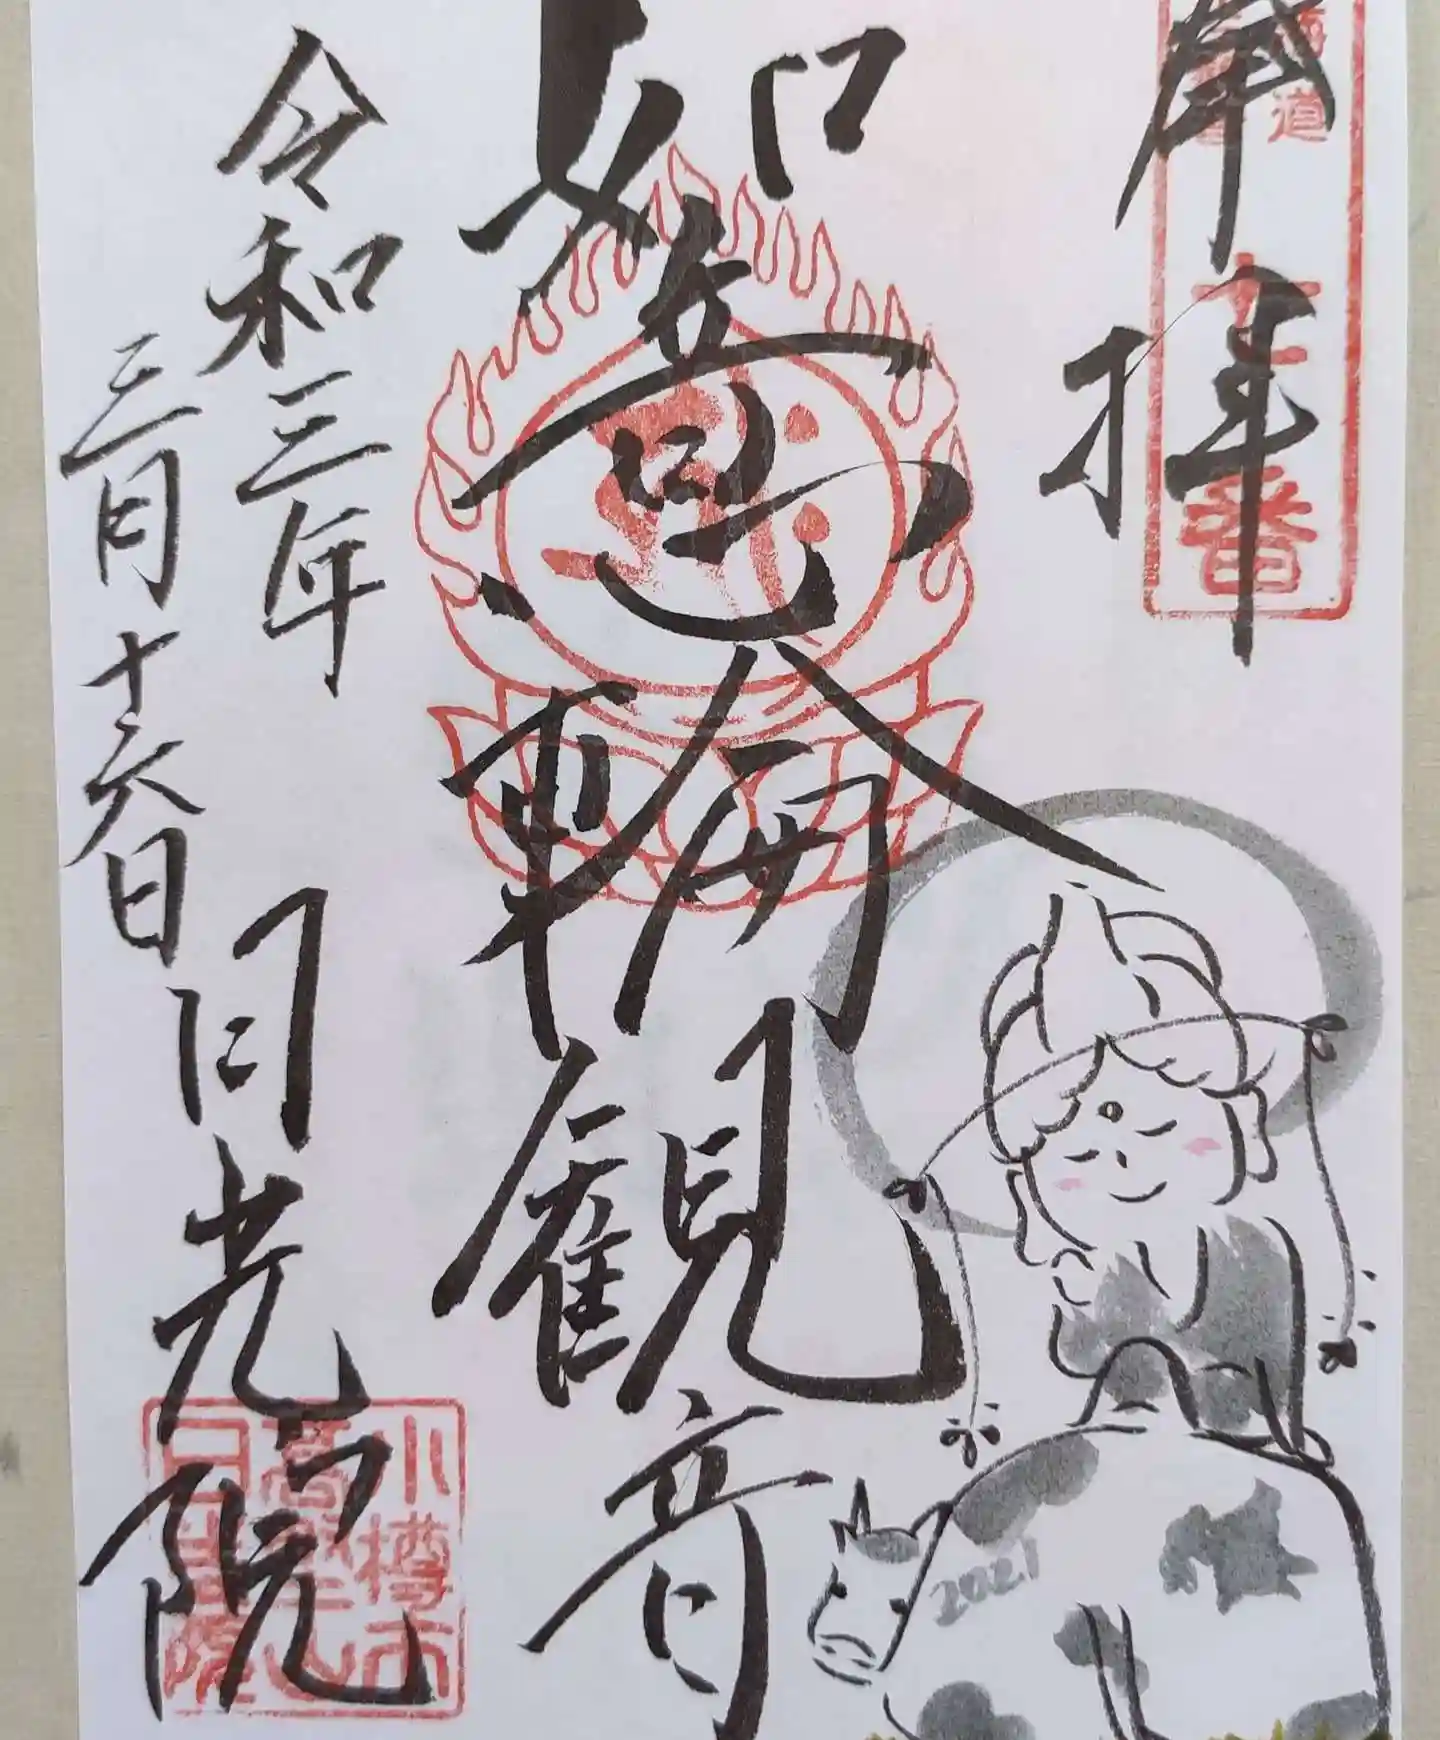 奉拝
道
番
如意輪観音
令和三年
三月十六日
日光院
小樽市
高野山
日光院
2021